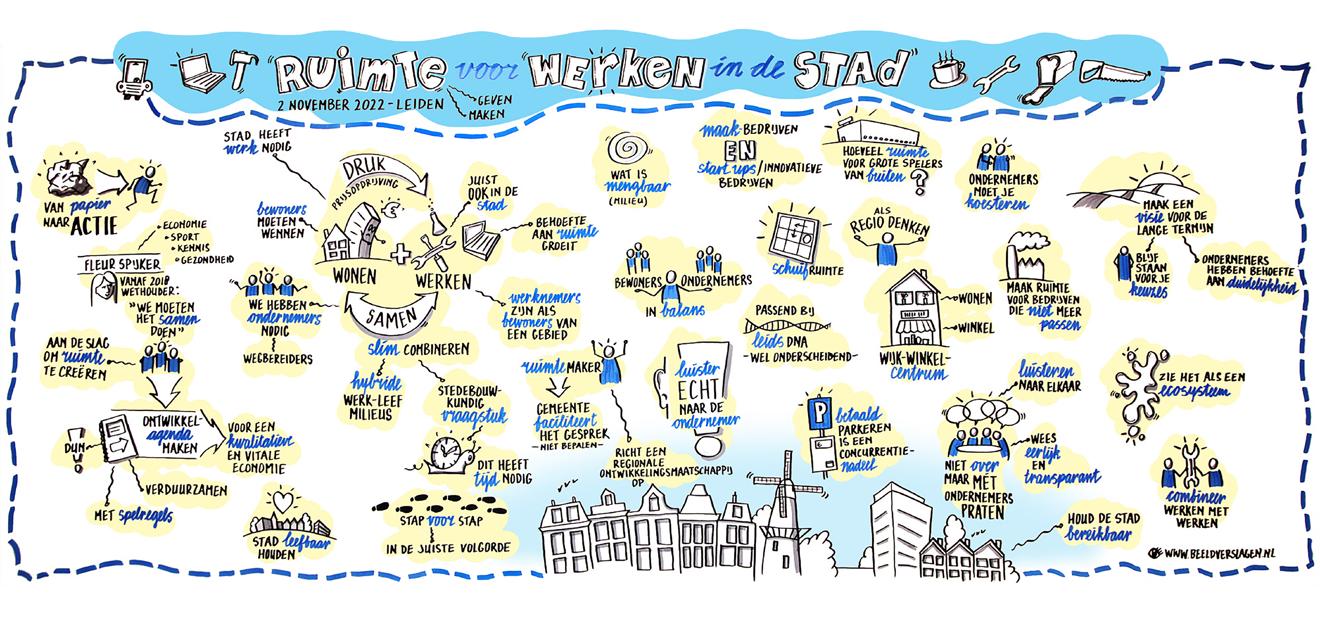 "RUIMTE voor WERKEN in de STAD"
2 NOVEMBER 2022 - LEIDEN
GEVEN
MAKEN
VAN papier
NAAR ACTIE
ECONOMIE
SPORT
KENNIS
GEZONDHEID
FLEUR SPIJKER
VANAF 2018
WETHOUDER:
"WE MOETEN
HET samen
DOEN"
AAN DE SLAG
OM ruimte
TE CREËREN
ONTWIKKEL-
agenda
MAKEN
DUN
VOOR EEN
kwalitatieve
EN VITALE
ECONOMIE
VERDUURZAMEN
MET spelregels
STAD HEEFT
werk NODIG
bewoners
MOETEN
WENNEN
DRUK
PRIJSOPDRIJVING
WONEN
+
WERKEN
SAMEN
JUIST
OOK IN DE
stad
BEHOEFTE
AAN ruimte
GROEIT
WE HEBBEN
ondernemers
NODIG
WEGBEREIDERS
werknemers
ZIJN ALS
bewoners VAN
EEN GEBIED
slim COMBINEREN
hybride
WERK-LEEF
MILIEUS
STEDEBOUW-
KUNDIG
vraagstuk
DIT HEEFT
tijd NODIG
STAD leefbaar
HOUDEN
STAP voor STAP
IN DE JUISTE VOLGORDE
WAT IS
mengbaar
(MILIEU)
maak-BEDRIJVEN
EN
start ups/INNOVATIEVE
BEDRIJVEN
HOEVEEL ruimte
VOOR GROTE SPELERS
VAN buiten
?
ONDERNEMERS
MOET JE
koesteren
BEWONERS
ONDERNEMERS
IN balans
schuifRUIMTE
ALS
REGIO DENKEN
PASSEND BIJ
leids DNA
-WEL ONDERSCHEIDEND-
WONEN
WINKEL
WIJK-WINKEL-
centrum
MAAK RUIMTE
VOOR BEDRIJVEN
DIE niet MEER
passen
MAAK EEN
visie VOOR DE
LANGE TERMIJN
BLIJF
STAAN
VOOR JE
keuzes
ONDERNEMERS
HEBBEN BEHOEFTE
AAN duidelijkheid
ruimteMAKER
GEMEENTE
faciliteert
HET GESPREK
-NIET BEPALEN-
RICHT EEN
REGIONALE
ONTWIKKELINGSMAATSCHAPPIJ
OP
luister
ECHT
NAAR DE
ondernemer
P
betaald
PARKEREN
IS EEN
CONCURRENTIE-
nadeel
luisteren
NAAR ELKAAR
NIET over
MAAR MET
ONDERNEMERS
PRATEN
WEES
eerlijk
EN
transparant
ZIE HET ALS EEN
ecosysteem
combineer
WERKEN MET
WERKEN
HOUD DE STAD
bereikbaar
WWW.BEELDVERSLAGEN.NL